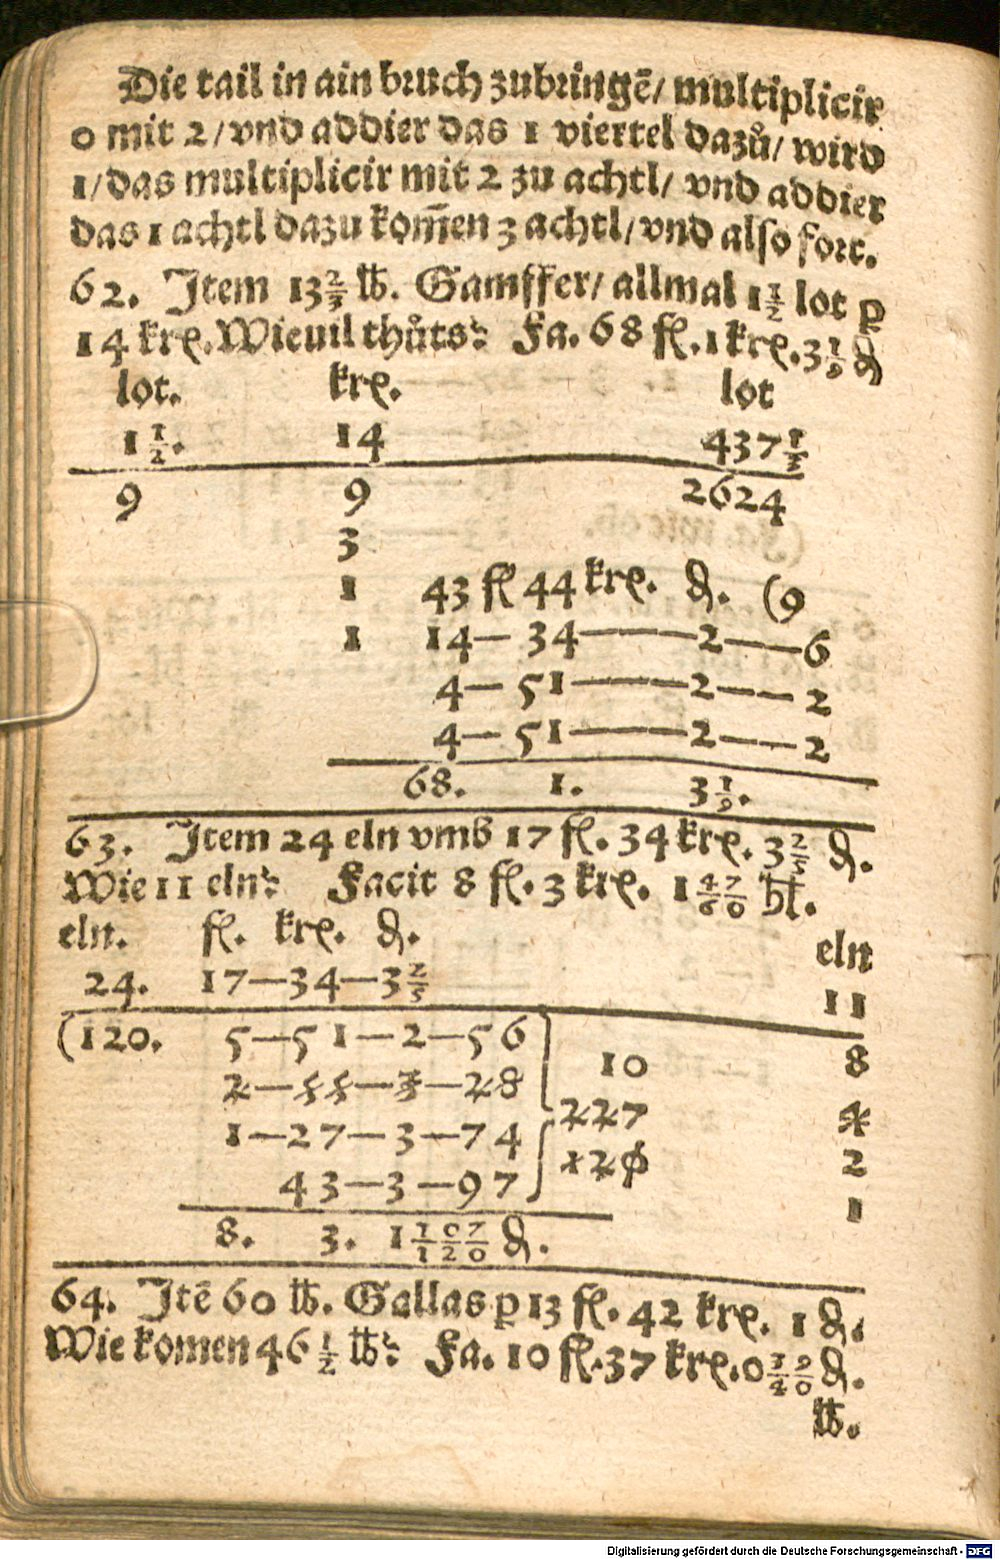 Die tail in ain bruch zubringē/ multiplicir
0 mit 2/ vnd addier das 1 viertel dazů/ wird
1/ das multiplicir mit 2 zu achtl/ vnd addier
das 1 achtl dazu kom̄en 3 achtl/ vnd also fort.
62. Item 13 2/3 ℔. Gamffer/ allmal 1 1/2 lot ꝑ
14 krꝭ. Wieuil thůts? Fa. 68 fl. 1 krꝭ. 3 1/9 ₰
lot. krꝭ. lot
1 1/2. 14 437 1/3
9 9 2624
3
1 43 fl 44 krꝭ. ₰. (9
1 14— 34——2——6
4— 51——2——2
4— 51——2——2
68. 1. 3 1/9.
63. Item 24 eln vmb 17 fl. 34 krꝭ. 3 2/5 ₰.
Wie 11 eln? Facit 8 fl. 3 krꝭ. 1 47/60 hl.
eln. fl. krꝭ. ₰. eln
24. 17—34—3 2/5 11
(120. 5—51—2—56 10 8
2—55—3—28 227 4
1—27—3—74 120 2
43—3—97 1
8. 3. 1 107/120 ₰.
64. Itē 60 ℔. Gallas ꝑ 13 fl. 42 krꝭ. 1 ₰.
Wie komen 46 1/2 ℔? Fa. 10 fl. 37 krꝭ. 0 19/40 ₰.
℔.
Digitalisierung gefördert durch die Deutsche Forschungsgemeinschaft - DFG